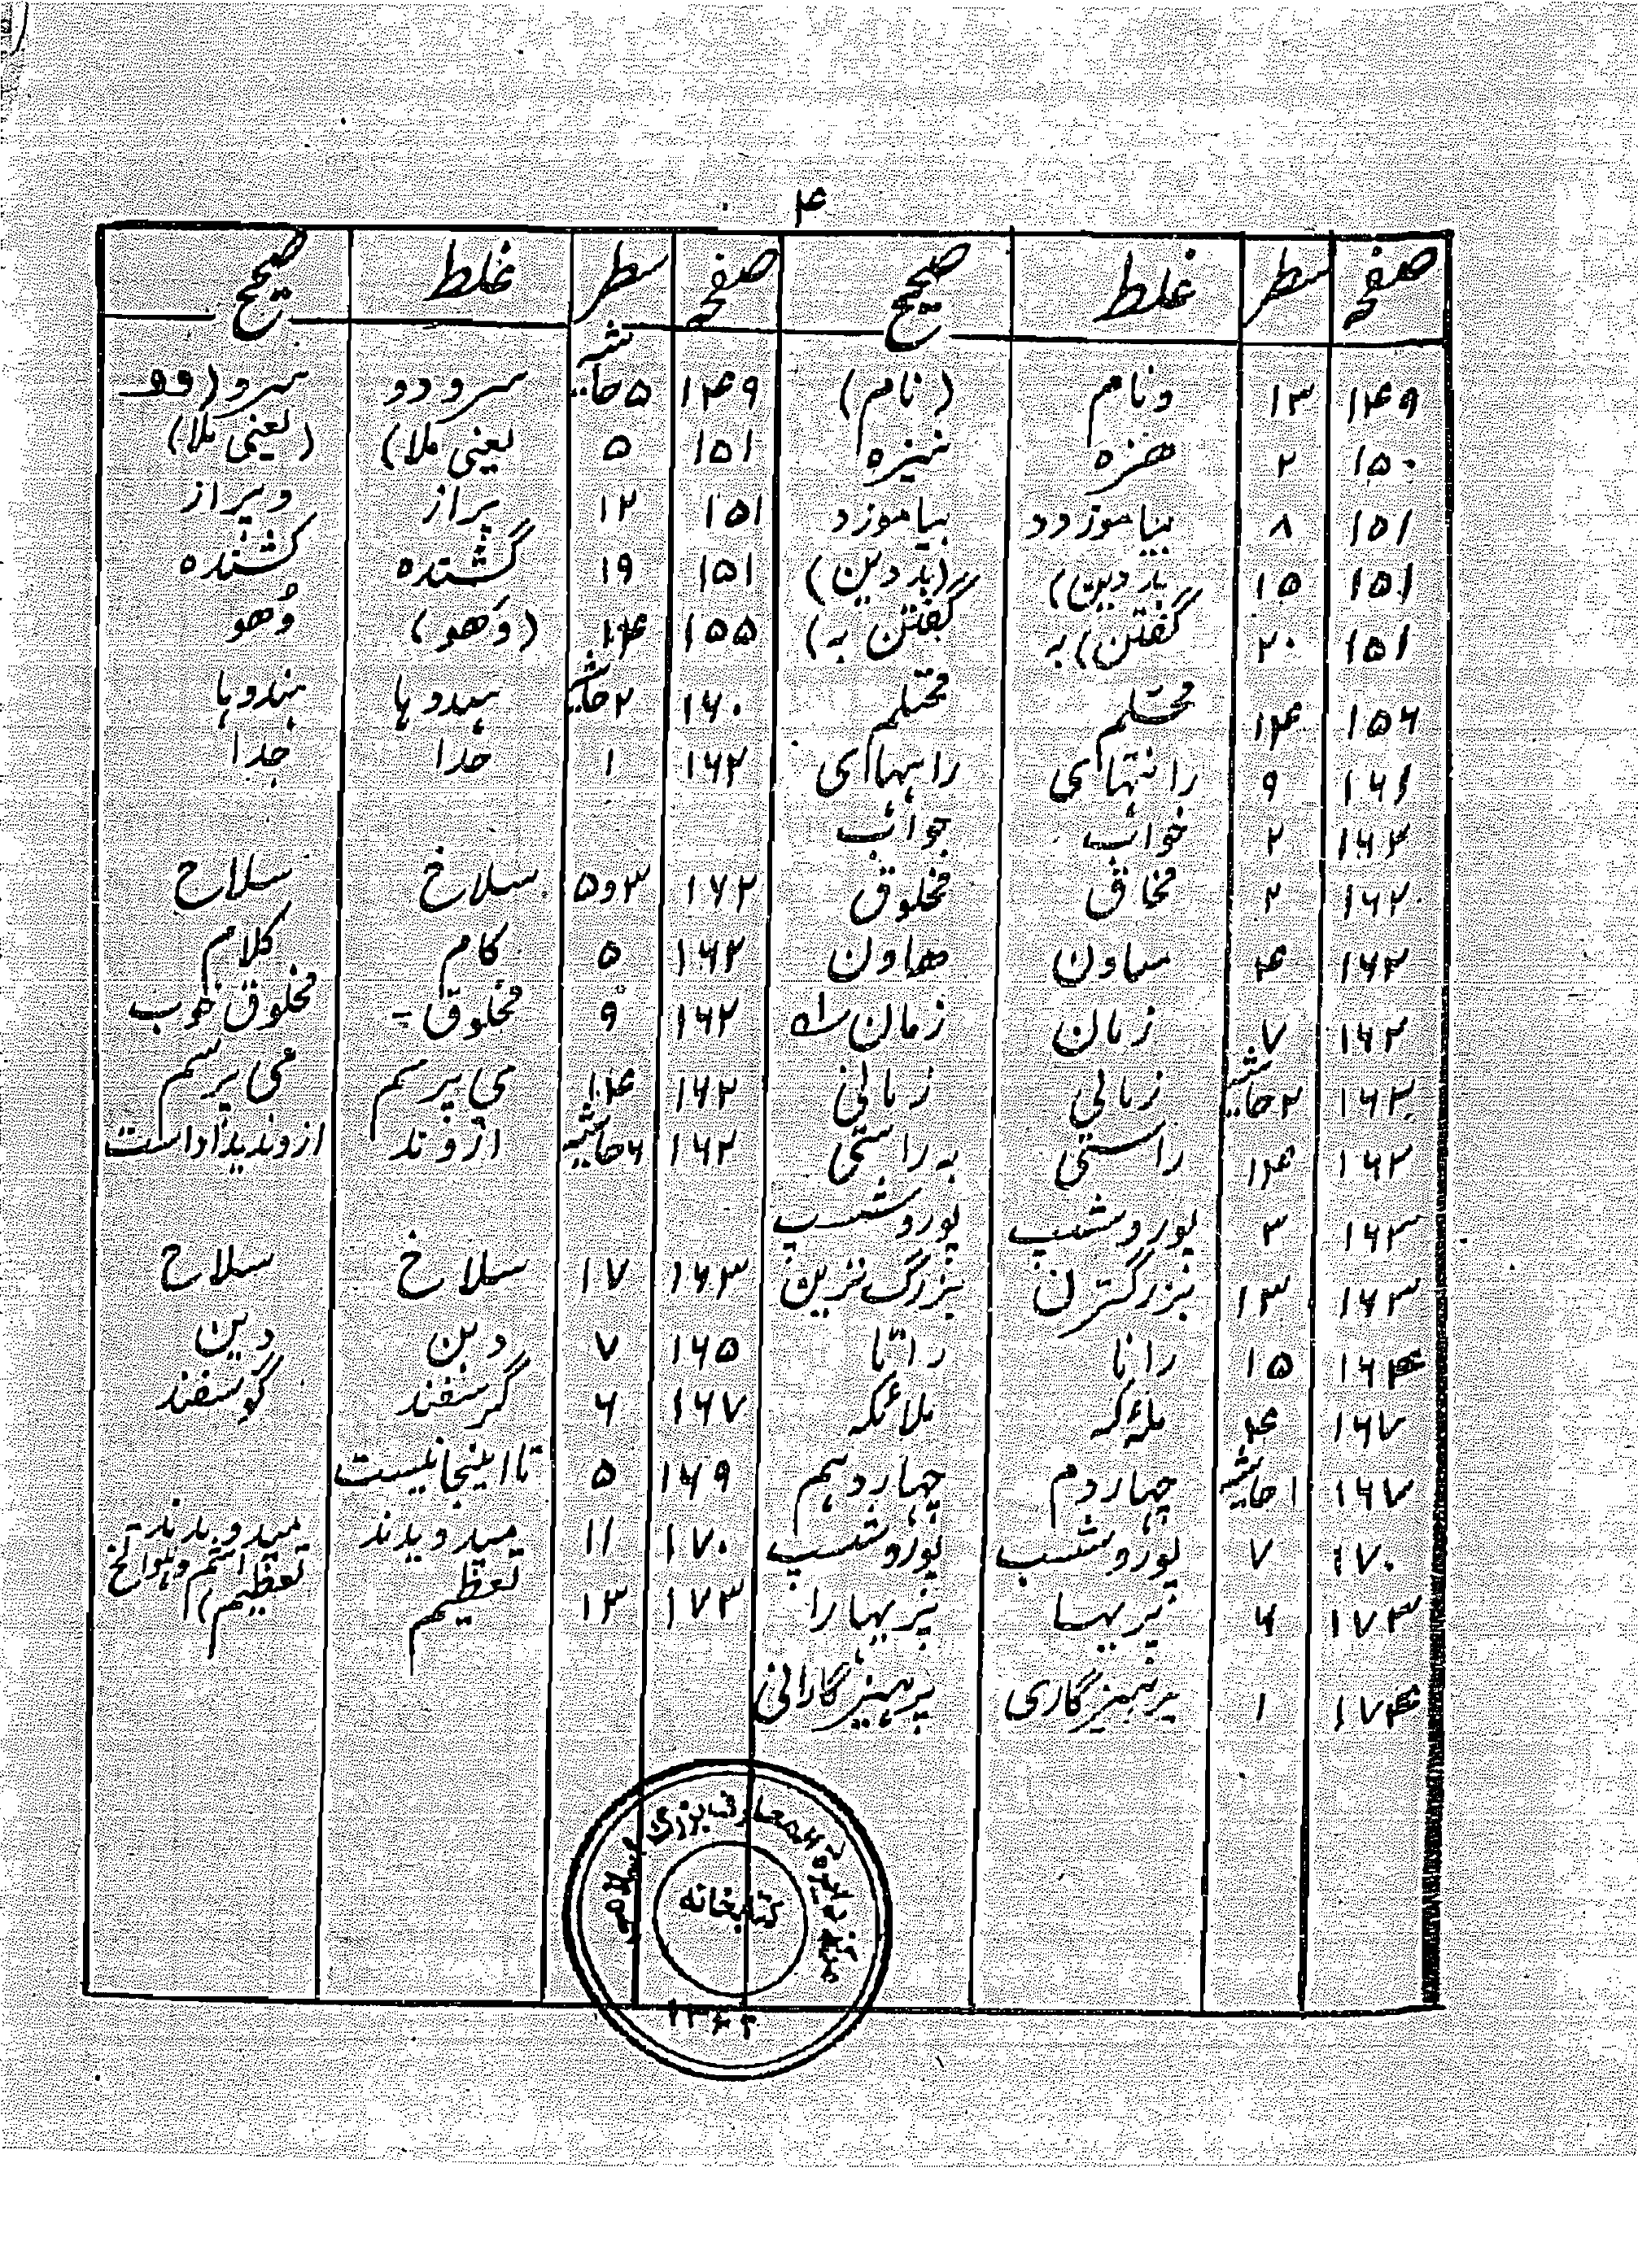 ۴
صفحه سطر غلط صحیح صفحه سطر غلط صحیح
۱۴۹ ۱۳ ونام (نام) ۱۴۹ ۵ حاشیه سرودو سرو (وو
۱۵۰ ۲ هنزه نیزه ۱۵۱ ۵ یعنی ملا) (یعنی ملا)
۱۵۱ ۸ بیاموزدو بیاموزد ۱۵۱ ۱۲ براز وبراز
۱۵۱ ۱۵ بار دین) (بار دین) ۱۵۱ ۱۹ گشتده کشنده
۱۵۱ ۲۰ گفتن) به گفتن به) ۱۵۵ ۱۴ (وَهو) وُهو
۱۵۶ ۱۴ محتلم محتلم ۱۶۰ ۲ حاشیه هیدوها هندوها
۱۶۱ ۹ رانتهای رانهاای ۱۶۲ ۱ خدا جدا
۱۶۲ ۲ خواب جواب
۱۶۲ ۲ مخاق مخلوق ۱۶۲ ۳و۵ سلاخ سلاح
۱۶۲ ۴ ساون هاون ۱۶۲ ۵ کام کلام
۱۶۲ ۷ زمان زمان راه ۱۶۲ ۹ مخلوق - مخلوق خوب
۱۶۲ ۲ حاشیه زمالی زمانی ۱۶۲ ۱۴ می پرسم می پرسم
۱۶۲ ۱۴ راستی به راستی ۱۶۲ ۶ حاشیه ازوند ازوندیداداست
۱۶۳ ۳ پوروشب پوروشسپ
۱۶۳ ۱۳ بزرگترن بزرگ ترین ۱۶۳ ۱۷ سلاخ سلاح
۱۶۴ ۱۵ رانا راتا ۱۶۵ ۷ دبن دین
۱۶۷ ۴ ملئکه ملائکه ۱۶۷ ۶ گرسفند گوسفند
۱۶۷ ۱ حاشیه چهاردم چهاردهم ۱۶۹ ۵ تااینجانیست
۱۷۰ ۷ پوروشسب پوروشسپ ۱۷۰ ۱۱ میدویدند میدویدند-
۱۷۳ ۶ نیریها نیریهارا ۱۷۳ ۱۳ تعظیم تعظیم)
۱۷۴ ۱ پرهیزگاری پرهیزگارانی
مرکز دایرة المعارف بزرگ اسلامی
کتابخانه
۱۳۶۲